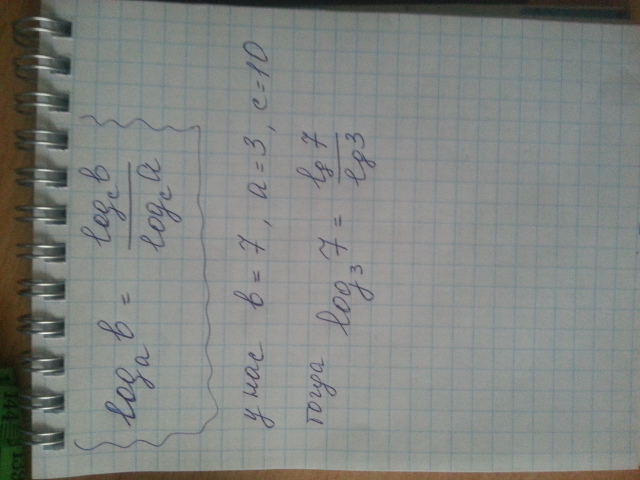 logₐ b = log_c b / log_c a
у нас b = 7, a = 3, c = 10
тогда log₃ 7 = lg 7 / lg 3